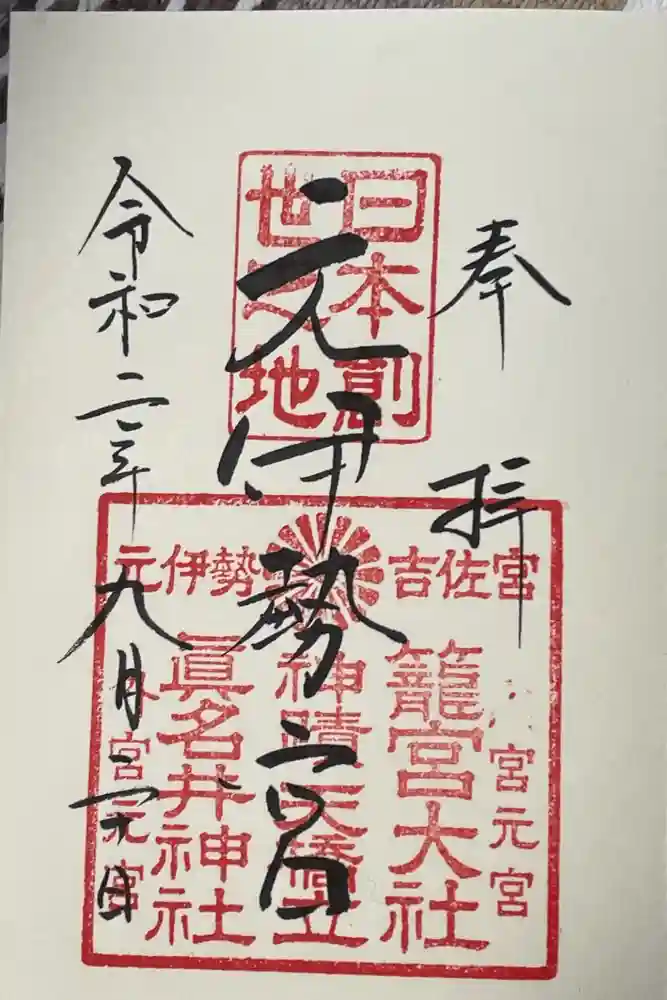 奉拝
日本創
世之地
元伊勢
吉佐宮
元伊勢
宮元宮
籠宮大社
神晴天橋立
眞名井神社
宮元宮
令和二年九月